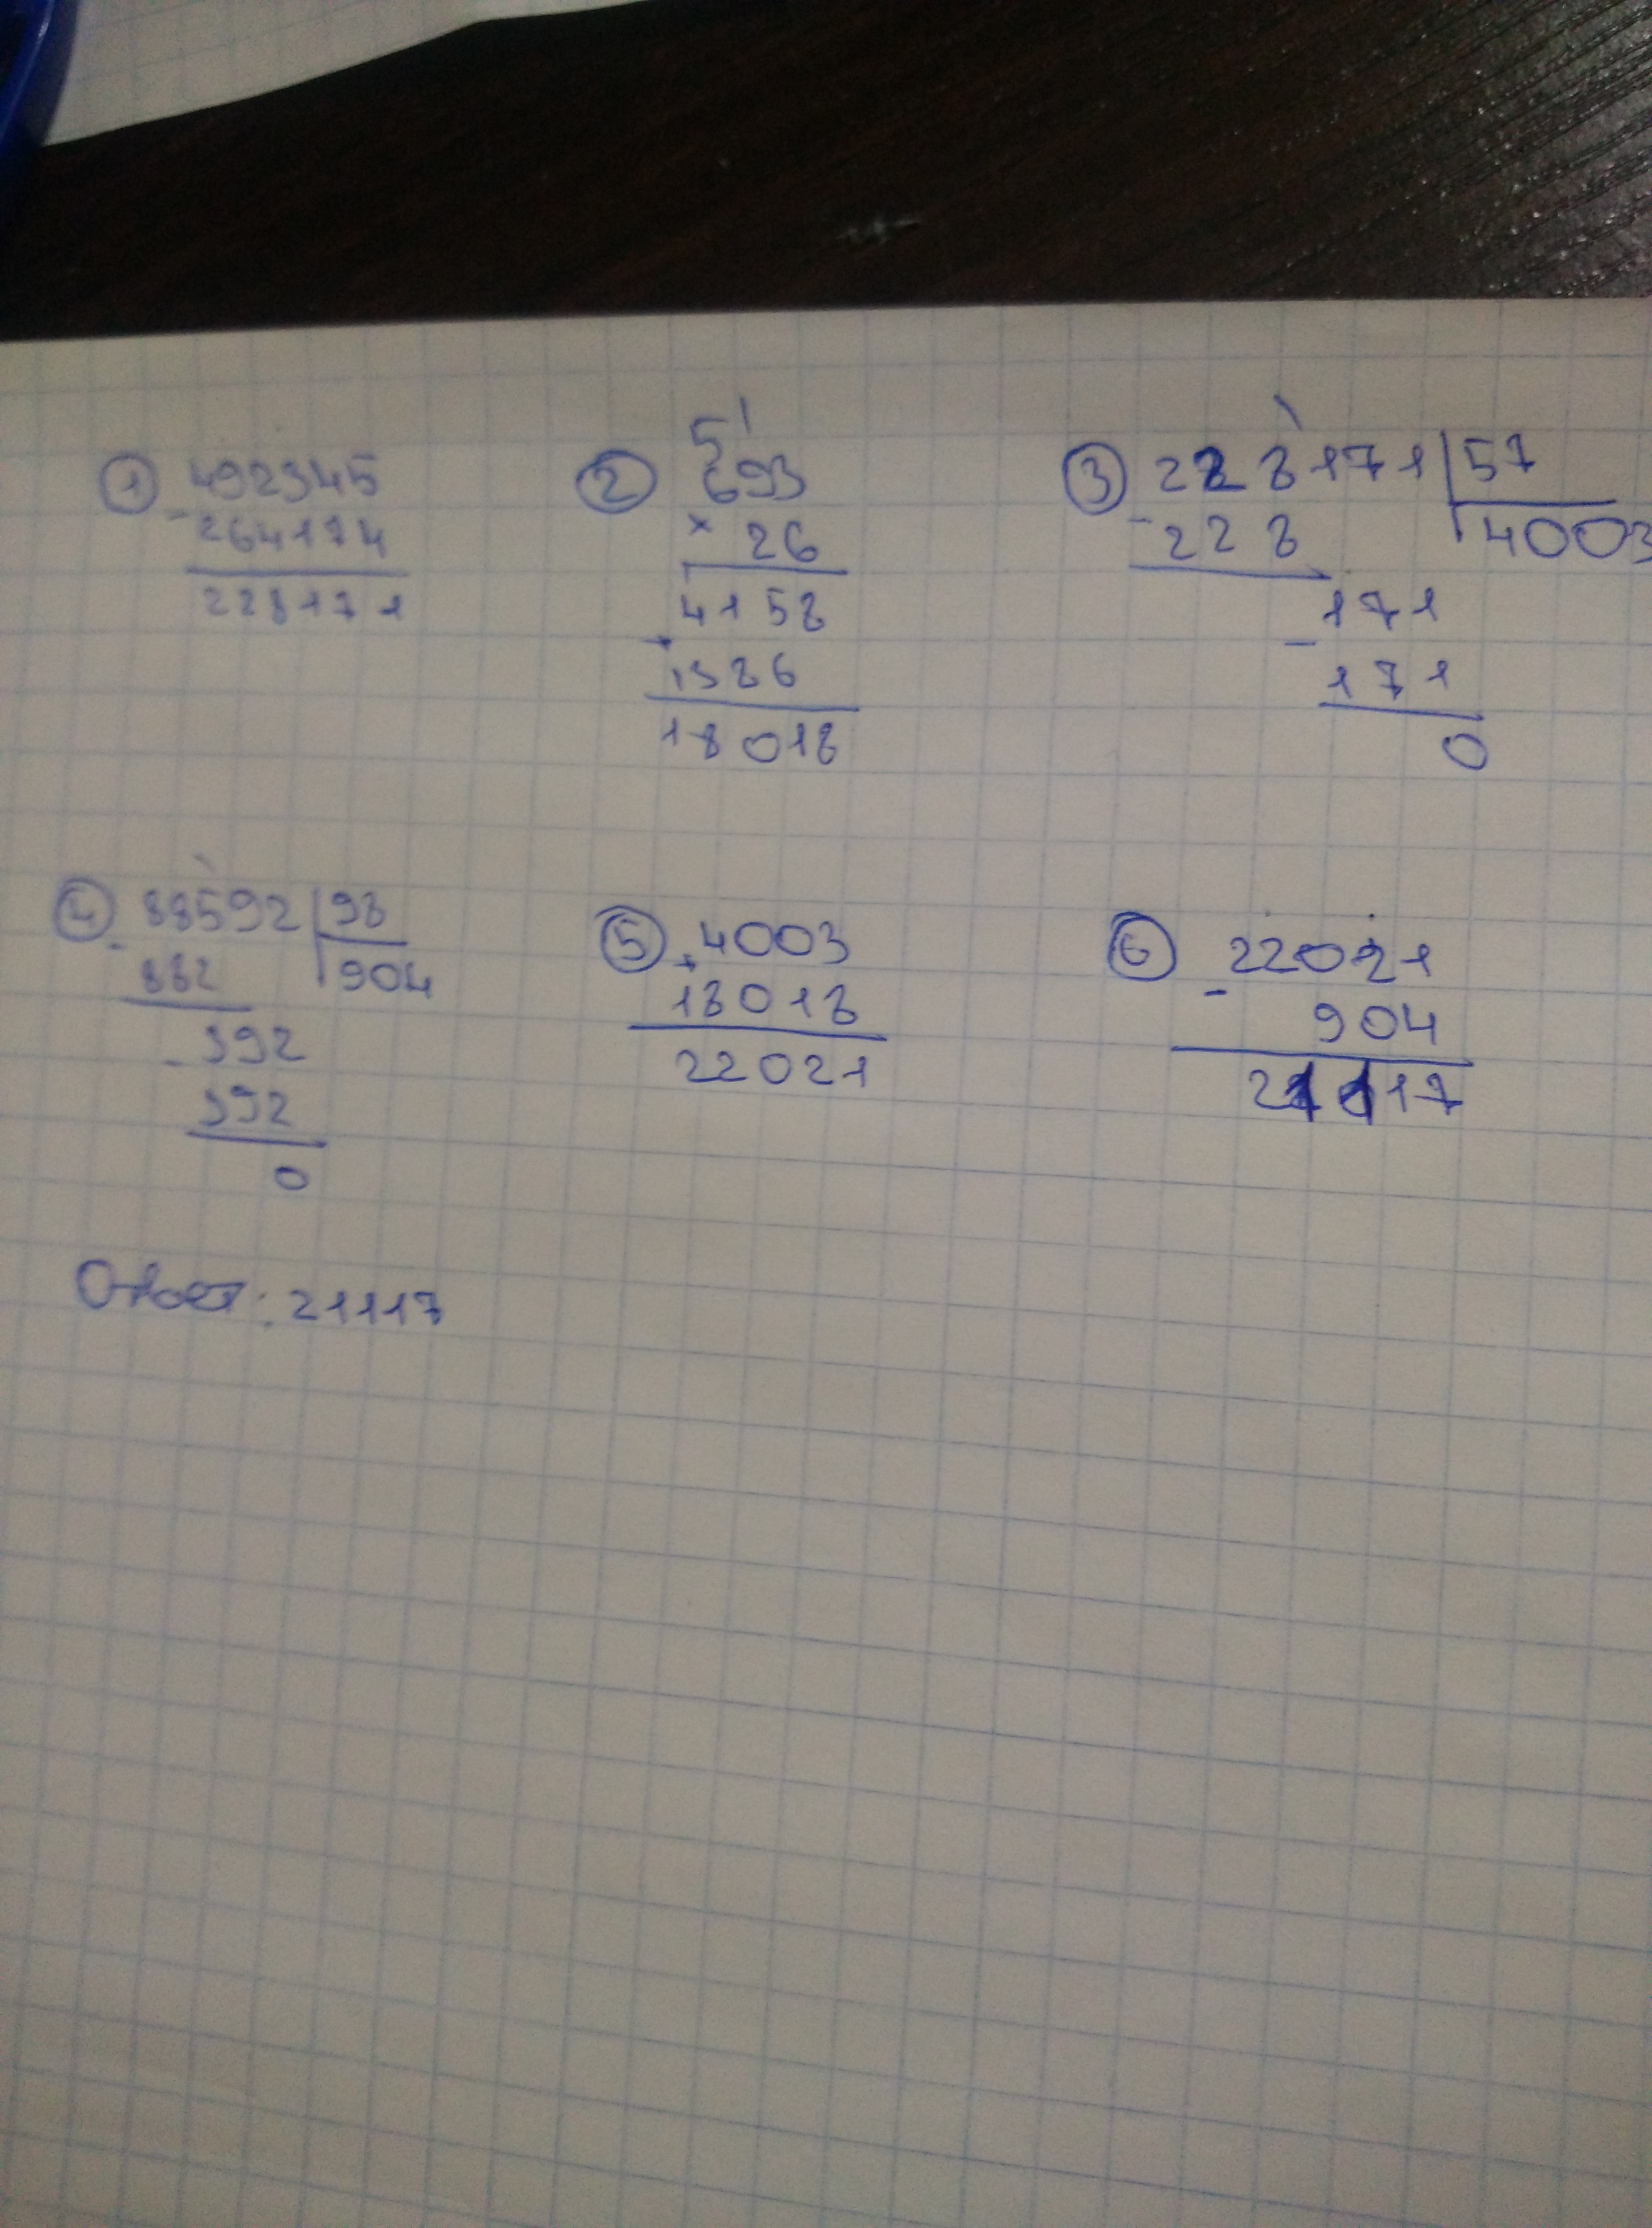 ① 492345
- 264174
228171
② 51
693
× 26
4158
+
1386
18018
③ 228171 | 57
- 228 4003
171
-
171
0
④ 88592 | 98
- 882 904
- 392
392
0
⑤ 4003
+
18018
22021
⑥ 22021
-
904
21117
Ответ: 21117